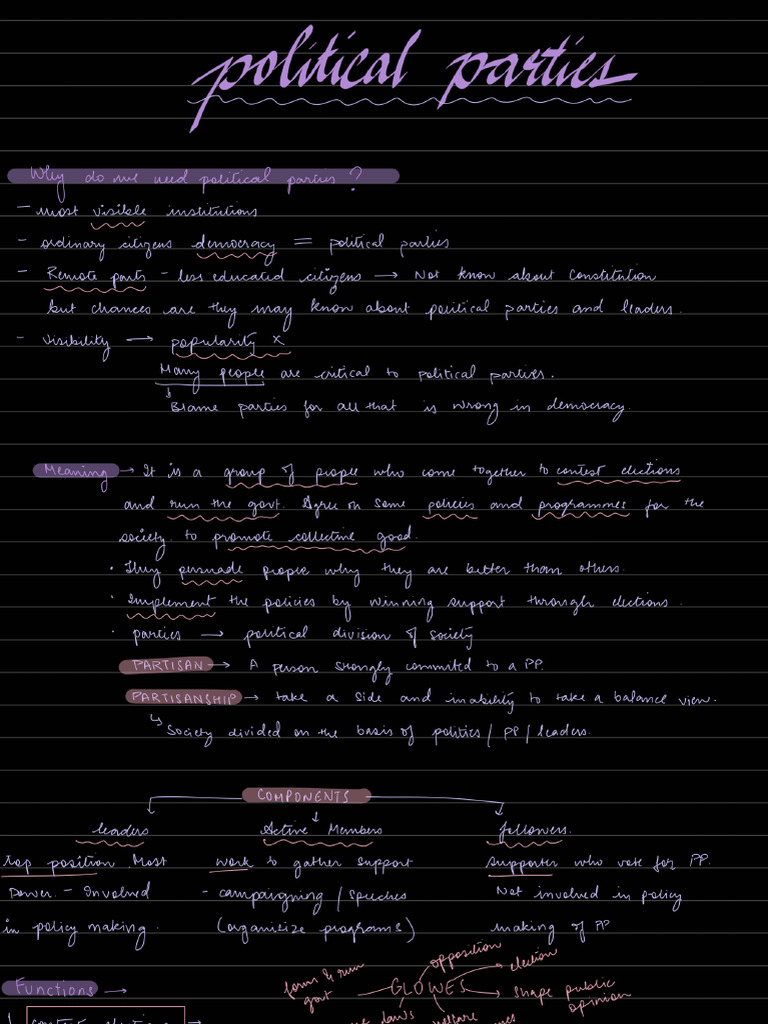 political parties
Why do we need political parties ?
- most visible institutions
- ordinary citizens democracy = political parties
- Remote parts - less educated citizens → Not know about Constitution
but chances are they may know about political parties and leaders.
- visibility → popularity x
Many people are critical to political parties.
↳ Blame parties for all that is wrong in democracy.
Meaning → It is a group of people who come together to contest elections
and run the govt. Agree on some policies and programmes for the
society to promote collective good.
· They persuade people why they are better than others.
· Implement the policies by winning support through elections.
· parties → political division of society
PARTISAN → A person strongly commited to a PP.
PARTISANSHIP → take a side and inability to take a balance view.
↳ Society divided on the basis of politics / PP / leaders.
COMPONENTS
leaders Active Members followers.
top position. Most work to gather support supporter who vote for PP.
Power. - Involved - campaigning / speeches Not involved in policy
in policy making. (organitize programs) making of PP
opposition
form & run govt GLOWES election
Functions → shape public opinion
laws welfare
1. contest elections →